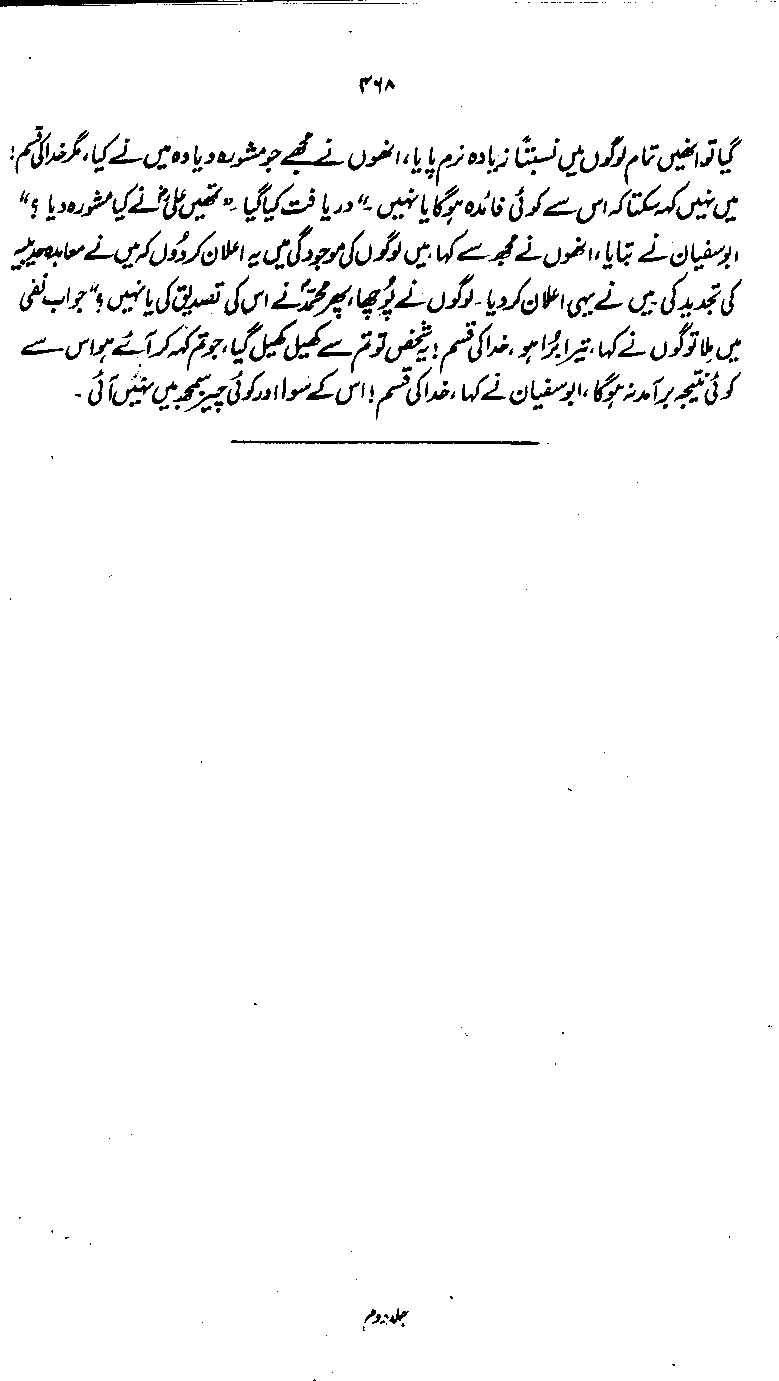 ۳۶۸
گیا تو انھیں تمام لوگوں میں نسبتاً زیادہ نرم پایا، انھوں نے مجھے جو مشورہ دیا وہ میں نے کیا، مگر خدا کی قسم!
میں نہیں کہہ سکتا کہ اس سے کوئی فائدہ ہوگا یا نہیں۔" دریافت کیا گیا۔ "تمھیں علیؓ نے کیا مشورہ دیا؟"
ابوسفیان نے بتایا، انھوں نے مجھ سے کہا، میں لوگوں کی موجودگی میں یہ اعلان کر دوں کہ میں نے معاہدہ حدیبیہ
کی تجدید کی۔ میں نے یہی اعلان کر دیا۔ لوگوں نے پوچھا، پھر محمدؐ نے اس کی تصدیق کی یا نہیں؟" جواب نفی
میں ملا تو لوگوں نے کہا، تیرا بُرا ہو، خدا کی قسم! یہ شخص تو تم سے کھیل کھیل گیا، جو تم کہہ کر آئے ہو اس سے
کوئی نتیجہ برآمد نہ ہوگا، ابوسفیان نے کہا، خدا کی قسم! اس کے سوا اور کوئی چیز سمجھ میں نہیں آئی۔
جلد دوم